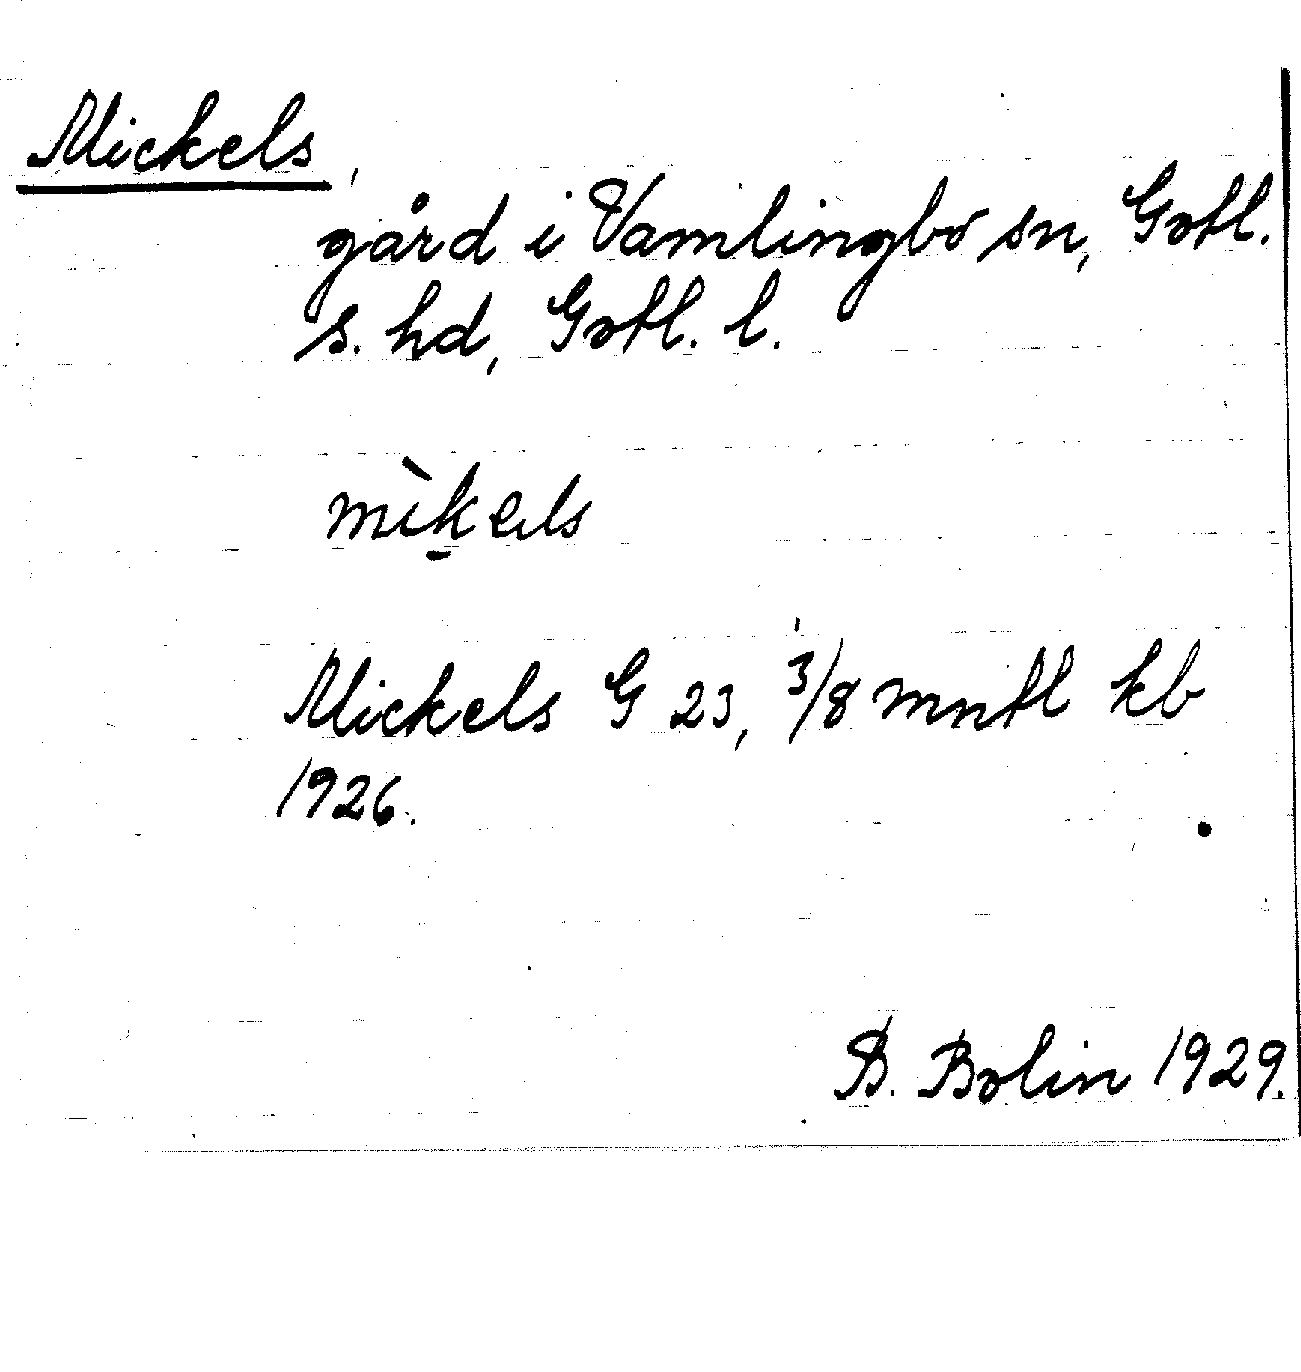 Mickels,
gård i Vamlingbo sn, Gotl.
s. hd, Gotl. l.
mìk̠els
Mickels G 23, 3/8 mntl kb
1926.
B. Bolin 1929.